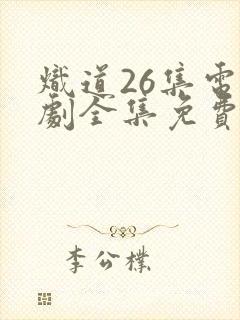 熾道26集電
劇全集免費
李公樸